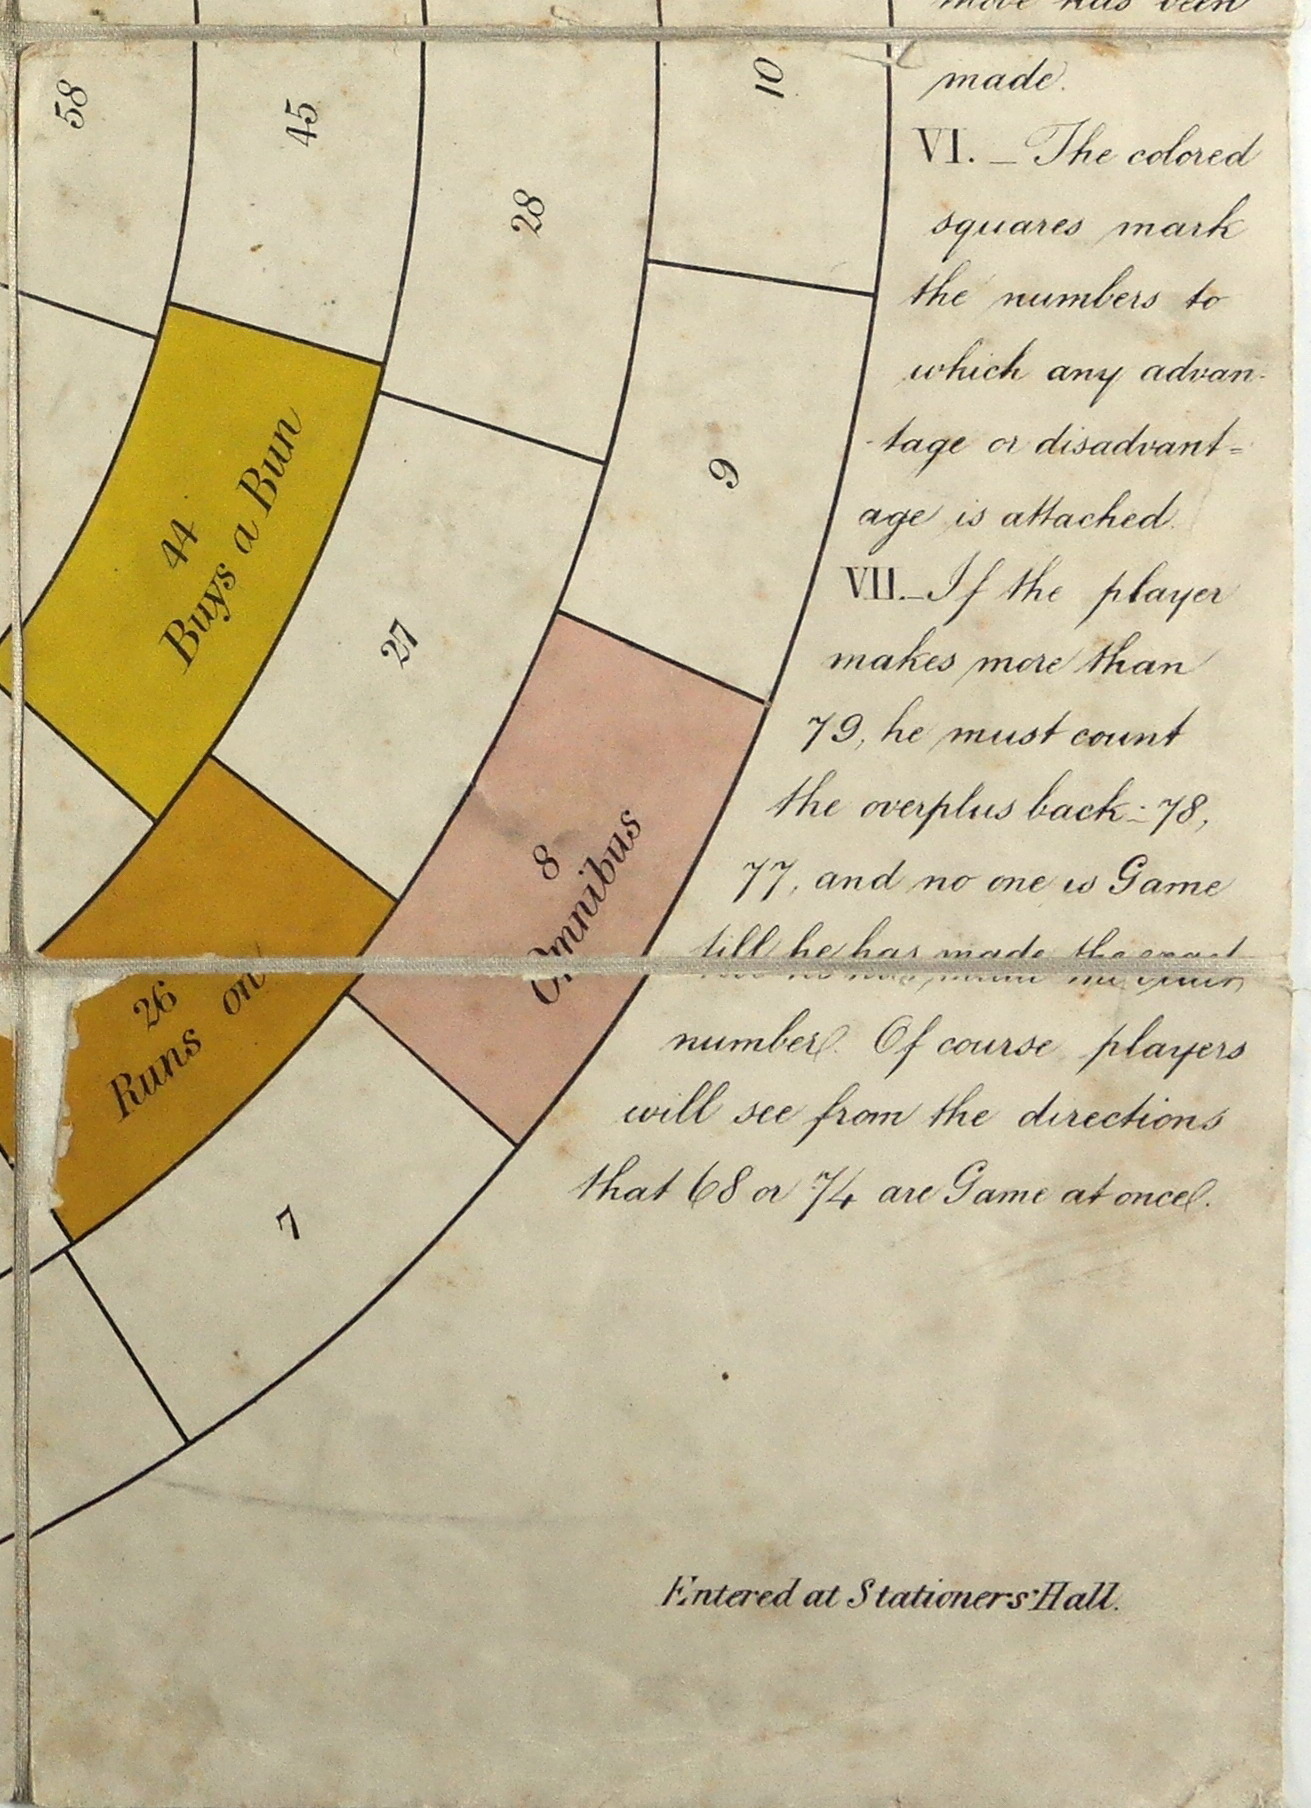 move has been
made.
VI. _ The colored
squares mark
the numbers to
which any advan-
tage or disadvant=
age is attached.
VII._ If the player
makes more than
79, he must count
the overplus back - 78,
77, and no one is Game
till he has made the exact
number. Of course players
will see from the directions
that 68 or 74 are Game at once.
58
45
28
10
9
44
Buys a Bun
27
8
Omnibus
26
Runs on
7
Entered at Stationers' Hall.